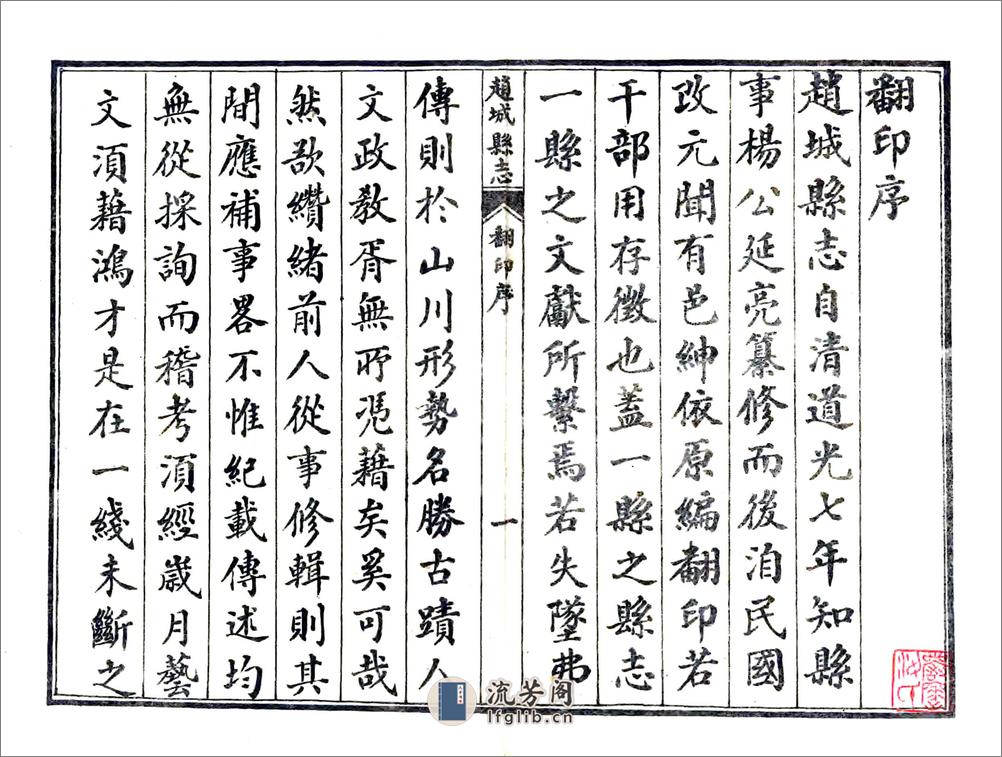 翻印序
趙城縣志自清道光七年知縣
事楊公延亮纂修而後洎民國
改元聞有邑紳依原編翻印若
干部用存徵也蓋一縣之縣志
一縣之文獻所繫焉若失墜弗
趙城縣志
翻印序
一
傳則於山川形勢名勝古蹟人
文政敎胥無所憑藉矣奚可哉
然欲纘緒前人從事修輯則其
間應補事畧不惟紀載傳述均
無從採詢而稽考須經歲月藝
文須藉鴻才是在一綫未斷之
流芳阁
lfglib.cn